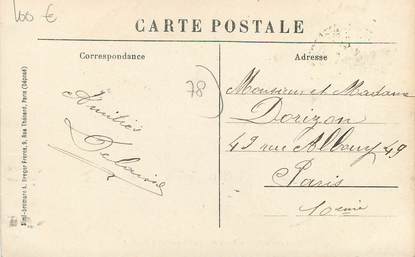 100 €
CARTE POSTALE
Correspondance
Adresse
78)
Amitiés
Monsieur et Madame
Dorizon
49 rue Albouy 49
Paris
10eme
A. Breger Frères, 9, Rue Thénard, Paris (Déposé)